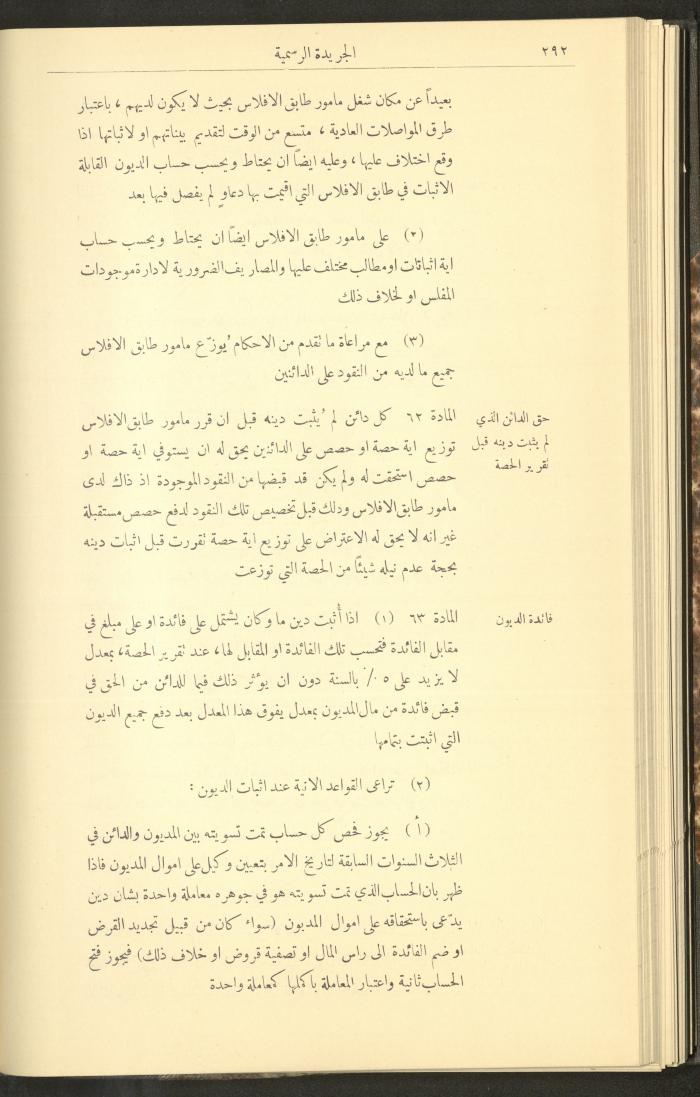 ٢٩٢
الجريدة الرسمية
بعيداً عن مكان شغل مامور طابق الافلاس بحيث لا يكون لديهم ، باعتبار
طرق المواصلات العادية ، متسع من الوقت لتقديم بيناتهم او لاثباتها اذا
وقع اختلاف عليها ، وعليه ايضاً ان يحتاط ويحسب حساب الديون القابلة
الاثبات في طابق الافلاس التي اقيمت بها دعاوٍ لم يفصل فيها بعد
(٢) على مامور طابق الافلاس ايضاً ان يحتاط ويحسب حساب
اية اثباتات او مطالب مختلف عليها والمصاريف الضرورية لادارة موجودات
المفلس او لخلاف ذلك
(٣) مع مراعاة ما تقدم من الاحكام يُوزّع مامور طابق الافلاس
جميع ما لديه من النقود على الدائنين
حق الدائن الذي
لم يثبت دينه قبل
تقرير الحصة
المادة ٦٢ كل دائن لم يُثبت دينه قبل ان قرر مامور طابق الافلاس
توزيع اية حصة او حصص على الدائنين يحق له ان يستوفي اية حصة او
حصص استحقت له ولم يكن قد قبضها من النقود الموجودة اذ ذاك لدى
مامور طابق الافلاس وذلك قبل تخصيص تلك النقود لدفع حصص مستقبلة
غير انه لا يحق له الاعتراض على توزيع اية حصة تقررت قبل اثبات دينه
بحجة عدم نيله شيئاً من الحصة التي توزعت
فائدة الديون
المادة ٦٣ (١) اذا أُثبت دين ما وكان يشتمل على فائدة او على مبلغ في
مقابل الفائدة فتحسب تلك الفائدة او المقابل لها، عند تقرير الحصة، بمعدل
لا يزيد على ٥ ٪ بالسنة دون ان يؤثر ذلك فيما للدائن من الحق في
قبض فائدة من مال المديون بمعدل يفوق هذا المعدل بعد دفع جميع الديون
التي اثبتت بتمامها
(٢) تراعى القواعد الاتية عند اثبات الديون :
(أ) يجوز فحص كل حساب تمت تسويته بين المديون والدائن في
الثلاث السنوات السابقة لتاريخ الامر بتعيين وكيل على اموال المديون فاذا
ظهر بان الحساب الذي تمت تسويته هو في جوهره معاملة واحدة بشان دين
يدّعى باستحقاقه على اموال المديون (سواء كان من قبيل تجديد القرض
او ضم الفائدة الى راس المال او تصفية قروض او خلاف ذلك) فيجوز فتح
الحساب ثانية واعتبار المعاملة باكملها كمعاملة واحدة